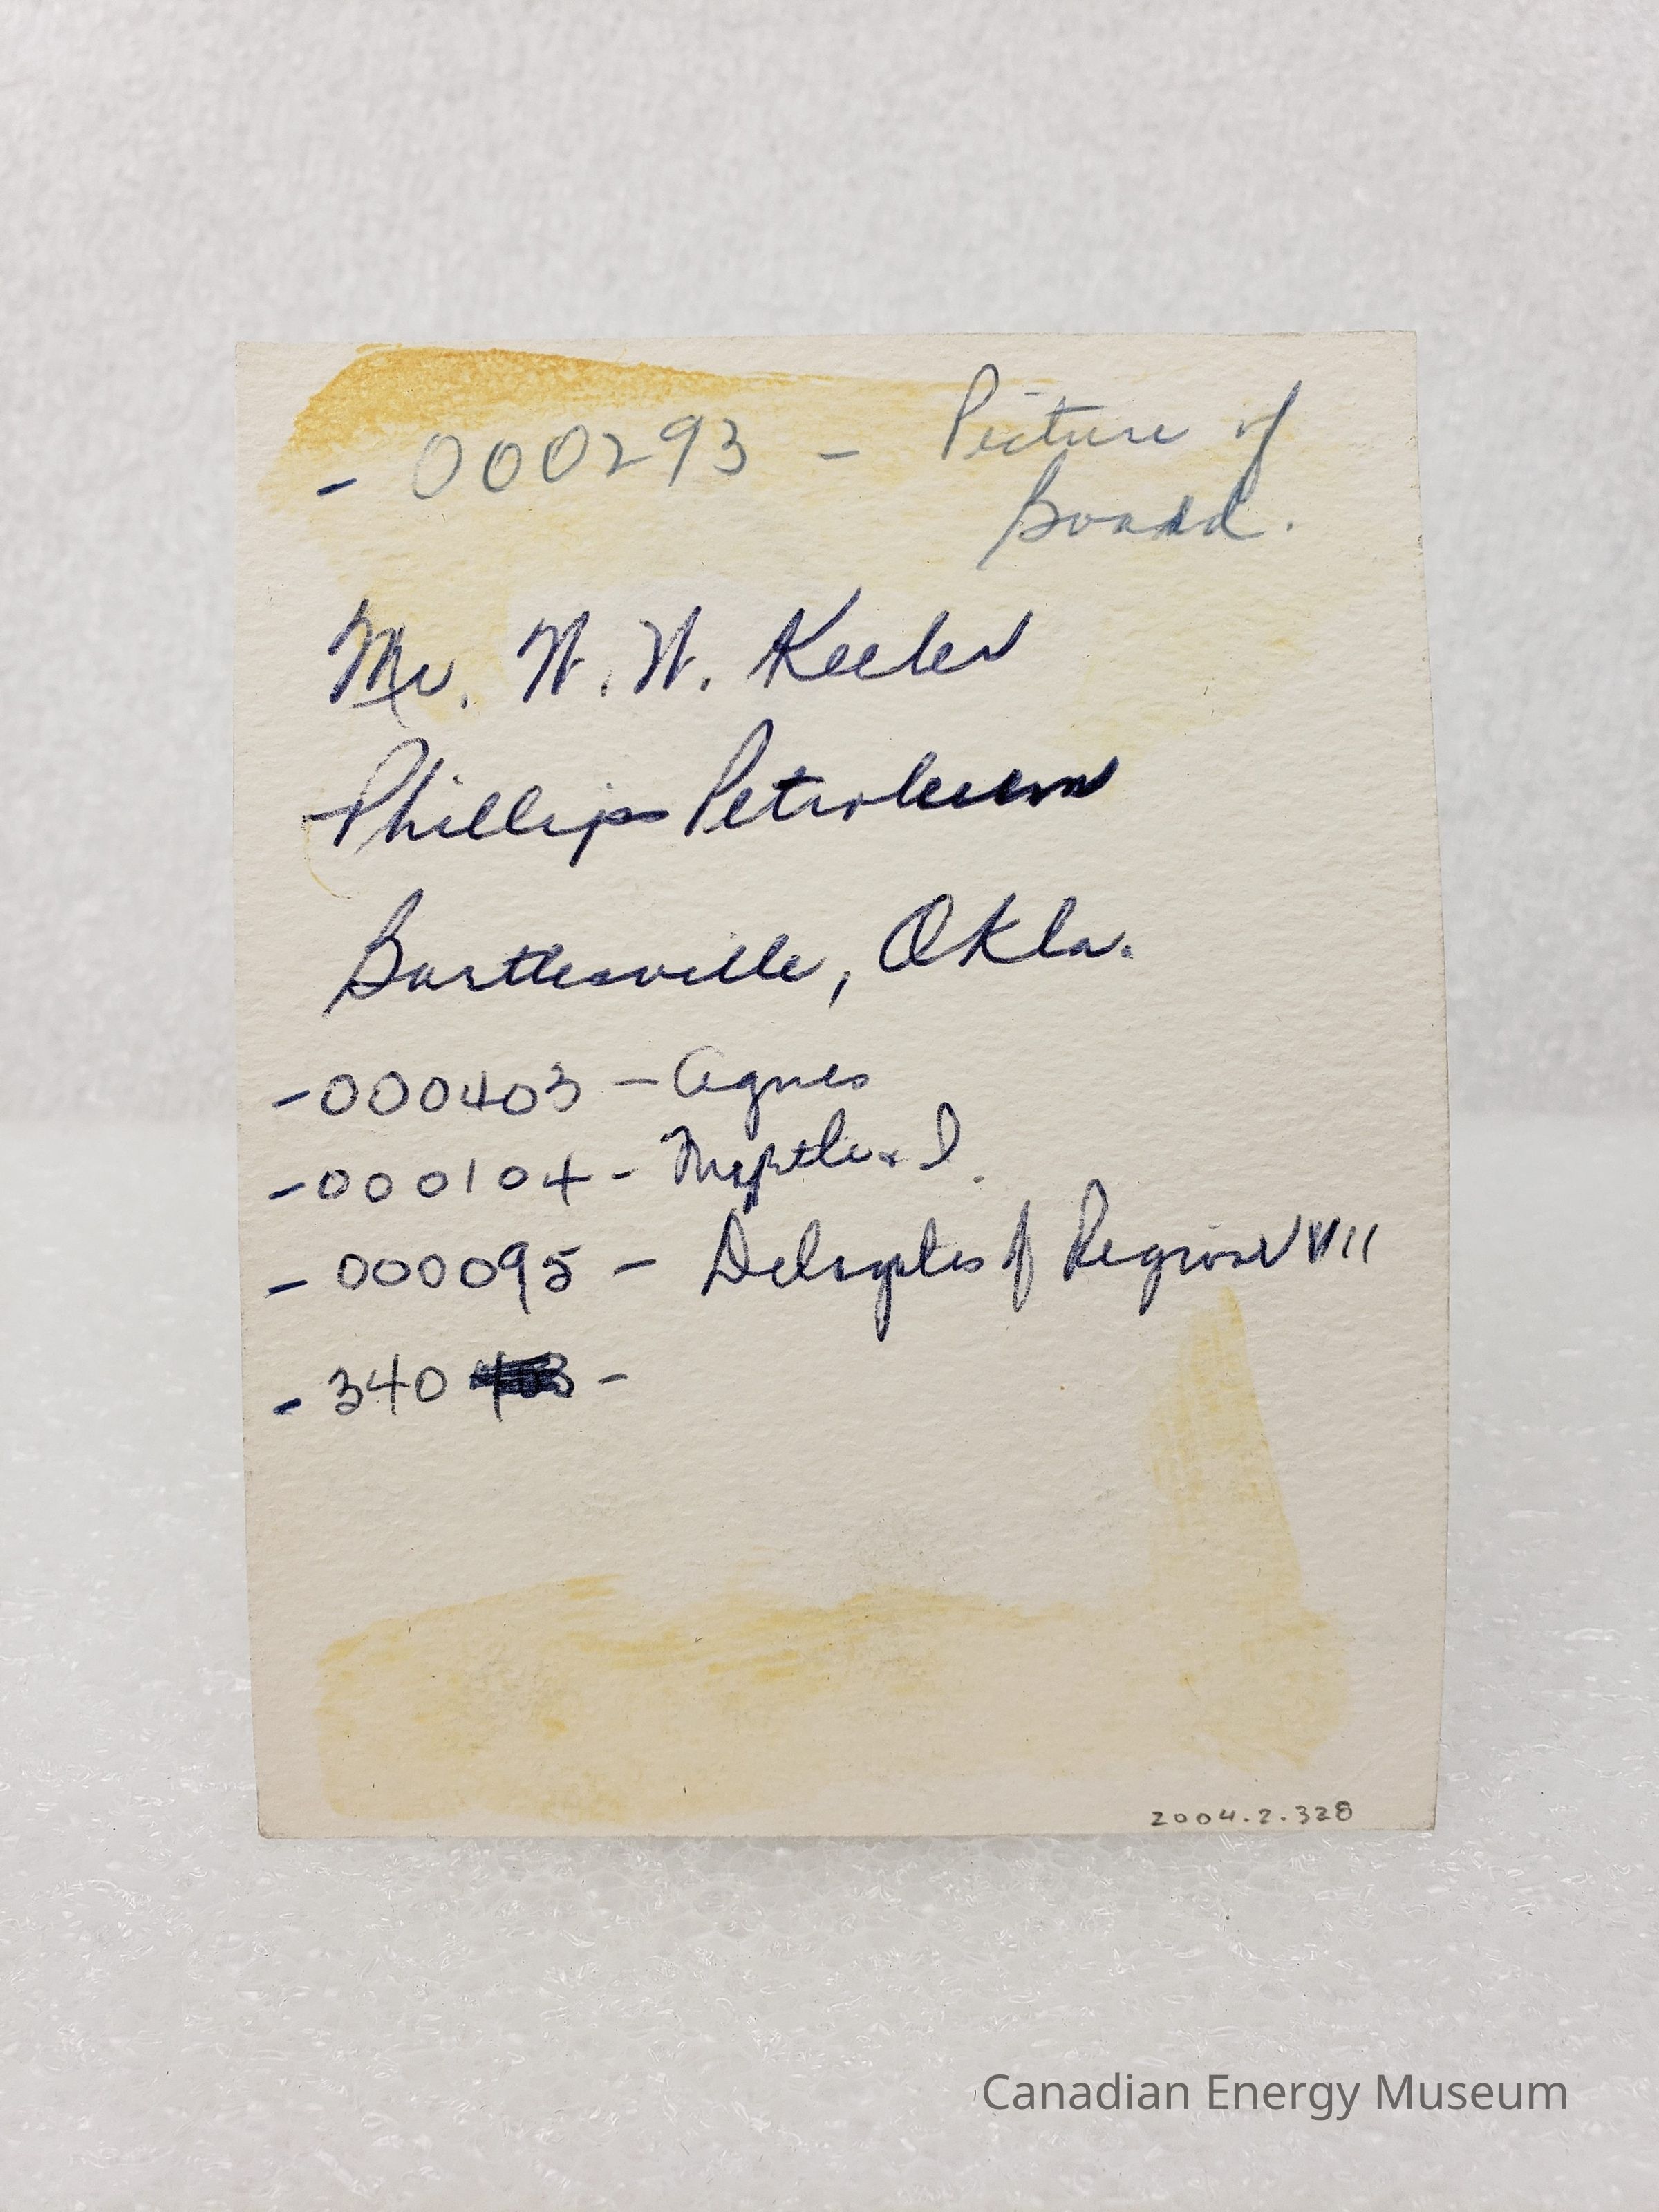 - 000293 - Picture of
Board.
Mr. W. W. Keeler
Phillips Petroleum
Bartlesville, Okla.
- 000403 - Agnes
- 000104 - Myrtle & I.
- 000095 - Delegates of Region VII
- 340 -
2004.2.328
Canadian Energy Museum